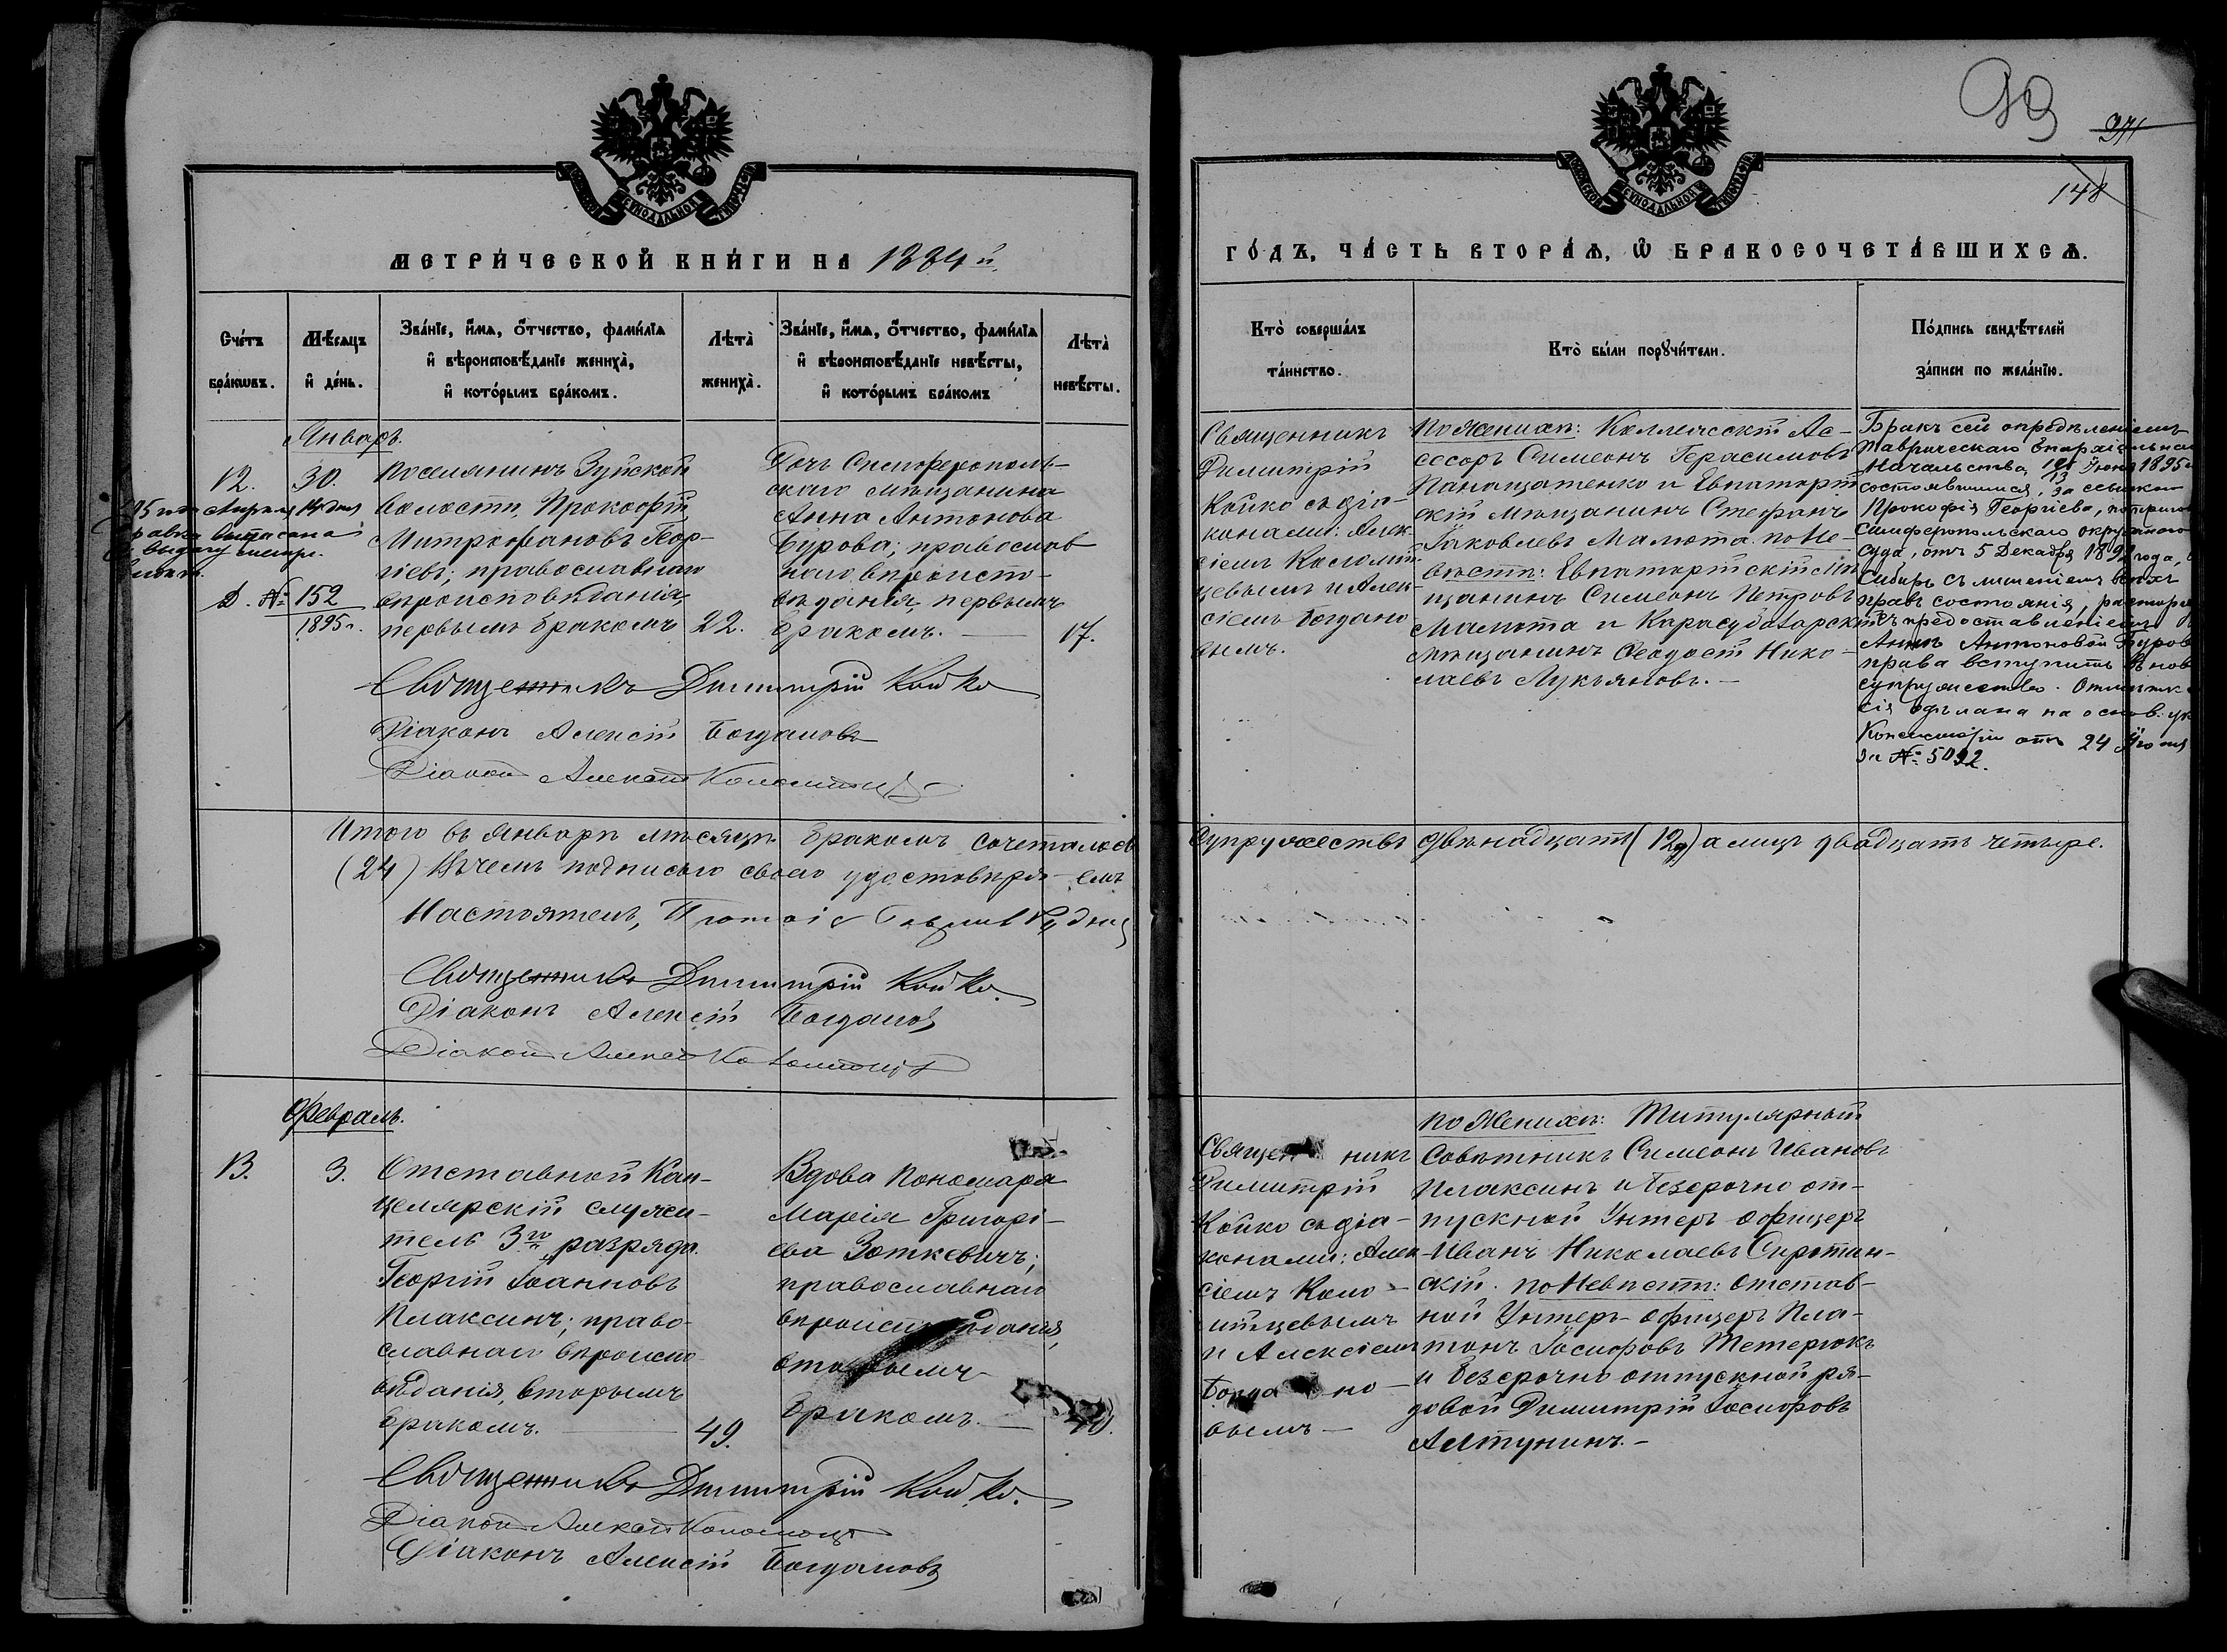 СѴНОДАЛЬНОЙ
МЕТРИ́ЧЕСКОЙ КНИ́ГИ НА 1884й
Сче́тъ
бра́кωвъ.
Мѣ́сяцъ
и҆ де́нь.
Зва́нїе, и҆́мѧ, ѻ҆́тчество, фами́лїѧ
и҆ вѣроисповѣ́данїе жениха̀,
и҆ кото́рымъ бра́комъ.
Лѣ́та̀
жениха̀.
Зва́нїе, и҆́мѧ, ѻ҆́тчество, фами́лїѧ
и҆ вѣроисповѣ́данїе невѣ́сты,
и҆ кото́рымъ бра́комъ
Лѣ́та̀
невѣ́сты.
Январь.
12. 30.
Поселянинъ Зуйской
волости, Прокофій
Митрофановъ Геор-
гіевъ; православнаго
вѣроисповѣданія,
первымъ бракомъ 22.
Дочь Симферополь-
скаго мѣщанина
Анна Антонова
Бурова; православ
наго вѣроиспо-
вѣданія, первымъ
бракомъ. — 17.
Д. № 152
1895 г.
Священникъ Димитрій Койко
Діаконъ Алексій Богдановъ
Діаконъ Алексій Коломійцевъ
Итого въ Январѣ мѣсяцѣ бракомъ сочеталось
(24) Въ чемъ подписью своею удостовѣряемъ
Настоятель,
Священникъ Димитрій Койко.
Діаконъ Алексій Богдановъ
Діаконъ Алексій Коломійцевъ
Февраль.
13. 3.
Отставной Кан-
целярскій служи-
тель 3го разряда
Георгій Іоанновъ
Плаксинъ; право-
славнаго вѣроиспо-
вѣданія, вторымъ
бракомъ. — 49.
Вдова Пономаря
Марія Григорі-
ева Зоткевичъ;
православнаго
вѣроисповѣданія,
вторымъ
бракомъ. — 40.
Священникъ Димитрій Койко.
Діаконъ Алексій Коломійцевъ
Діаконъ Алексій Богдановъ
99
148
СѴНОДАЛЬНОЙ
ГО́ДЪ, ЧА́СТЬ ВТОРА́Ѧ, Ѡ҆ БРАКОСОЧЕТА́ВШИХСѦ.
Кто̀ соверша́лъ
та́инство.
Кто̀ бы́ли порꙋчи́тели.
По́дпись свидѣ́телей
за́писи по жела́нїю.
Священникъ
Димитрій
Койко съ діа-
конами: Алек-
сіемъ Коломій-
цевымъ и Алек-
сіемъ Богдано
вымъ.
По Женихѣ: Коллежскій Ас-
сесоръ Симеонъ Герасимовъ
Панащатенко и Евпаторій
скій мѣщанинъ Стефанъ
Іаковлевъ Малюта. по Не-
вѣстѣ: Евпаторійскій мѣ
щанинъ Симеонъ Петровъ
Малюта и Карасубазарскій
мѣщанинъ Ѳеодосій Нико-
лаевъ Лукъяновъ. —
Бракъ сей опредѣленіемъ
Таврическаго Епархіальнаго
Начальства, Іюня 1895 г.
состоявшимся, за ссылкою
Прокофія Георгіева, по приговору
Симферопольскаго окружного
суда, отъ 5 Декабря 1892 года, въ
Сибирь съ лишеніемъ всѣхъ
правъ состоянія, расторгнутъ
съ предоставленіемъ
Аннѣ Антоновой Буровой
права вступить въ новое
супружество. Отмѣтка
сія сдѣлана на основ. ук.
Консисторіи отъ 24 Іюня
за № 5092.
супружествъ двѣнадцать (12) а лицъ двадцать четыре.
Священникъ
Димитрій
Койко съ діа-
конами: Алек-
сіемъ Коло-
мійцевымъ
и Алексіемъ
Богдано-
вымъ —
по Женихѣ: Титулярный
Совѣтникъ Симеонъ Ивановъ
Плаксинъ и безсрочно от-
пускной Унтеръ офицеръ
Иванъ Николаевъ Сиротин-
скій. по Невѣстѣ: Отстав-
ной Унтеръ-офицеръ Пла-
тонъ Іосифовъ Тетерюкъ
и безсрочно отпускной ря-
довой Димитрій Іосифовъ
Алтунинъ. —